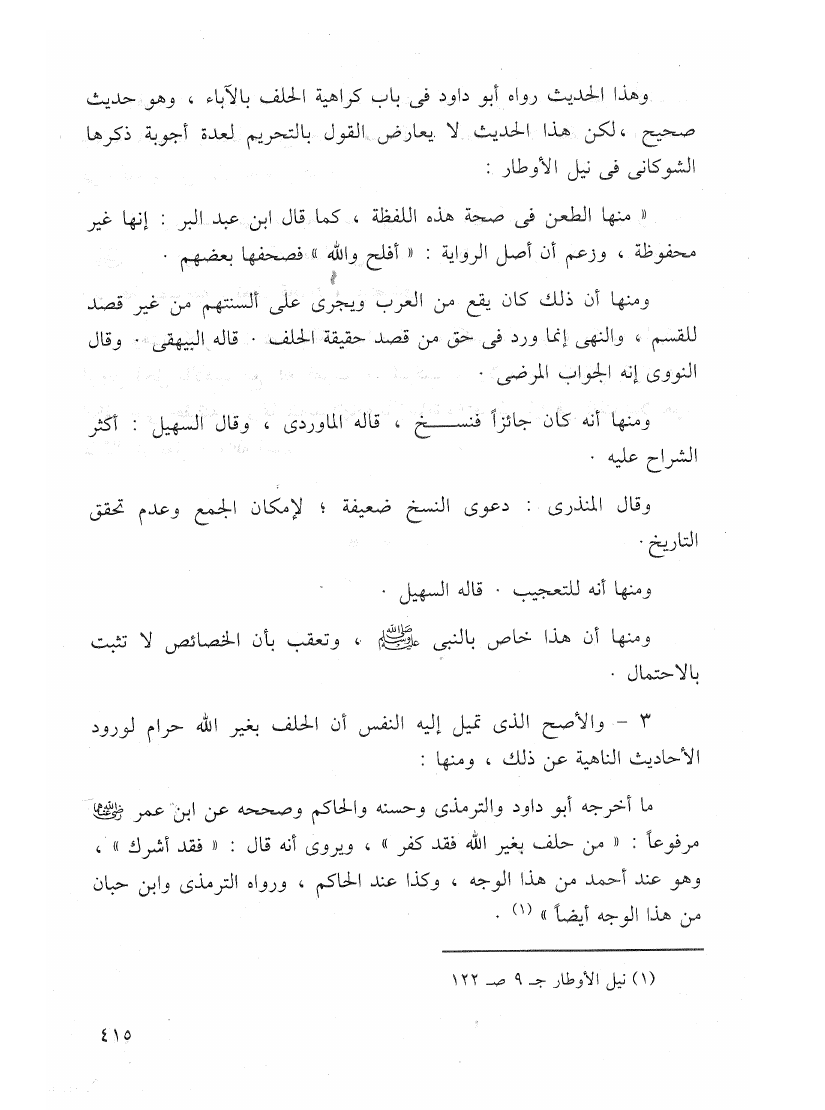 وهذا الحديث رواه أبو داود فى باب كراهية الحلف بالآباء ، وهو حديث
صحيح ،لكن هذا الحديث لا يعارض القول بالتحريم لعدة أجوبة ذكرها
الشوكانى فى نيل الأوطار :
« منها الطعن فى صحة هذه اللفظة ، كما قال ابن عبد البر : إنها غير
محفوظة ، وزعم أن أصل الرواية : « أفلح والله » فصحفها بعضهم .
ومنها أن ذلك كان يقع من العرب ويجرى على ألسنتهم من غير قصد
للقسم ، والنهى إنما ورد فى حق من قصد حقيقة الحلف . قاله البيهقى . وقال
النووى إنه الجواب المرضى .
ومنها أنه كان جائزاً فنســـخ ، قاله الماوردى ، وقال السهيل : أكثر
الشراح عليه .
وقال المنذرى : دعوى النسخ ضعيفة ؛ لإمكان الجمع وعدم تحقق
التاريخ .
ومنها أنه للتعجيب . قاله السهيل .
ومنها أن هذا خاص بالنبى ﷺ ، وتعقب بأن الخصائص لا تثبت
بالاحتمال .
٣ - والأصح الذى تميل إليه النفس أن الحلف بغير الله حرام لورود
الأحاديث الناهية عن ذلك ، ومنها :
ما أخرجه أبو داود والترمذى وحسنه والحاكم وصححه عن ابن عمر رضي الله عنهما
مرفوعاً : « من حلف بغير الله فقد كفر » ، ويروى أنه قال : « فقد أشرك » ،
وهو عند أحمد من هذا الوجه ، وكذا عند الحاكم ، ورواه الترمذى وابن حبان
من هذا الوجه أيضاً » (١) .
(١) نيل الأوطار جـ ٩ صـ ١٢٢
٤١٥